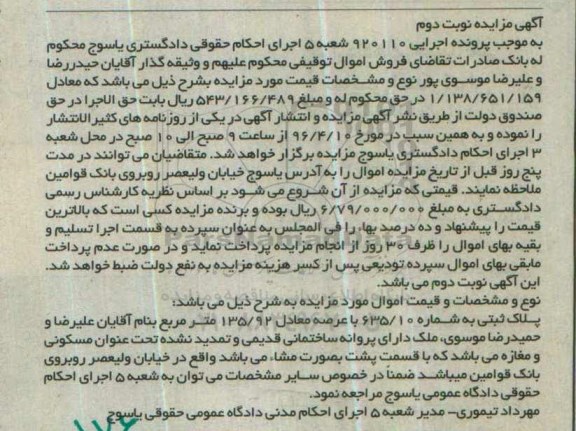 آگهی مزایده نوبت دوم
به موجب پرونده اجرایی ۹۲۰۱۱۰ شعبه ۵ اجرای احکام حقوقی دادگستری یاسوج محکوم
له بانک صادرات تقاضای فروش اموال توقیفی محکوم علیهم و وثیقه گذار آقایان حیدررضا
و علیرضا موسوی پور نوع و مشخصات قیمت مورد مزایده بشرح ذیل می باشد که معادل
۱/۱۳۸/۶۵۱/۱۵۹ در حق محکوم له و مبلغ ۵۴۳/۱۶۶/۴۸۹ ریال بابت حق الاجرا در حق
صندوق دولت از طریق نشر آگهی مزایده و انتشار آگهی در یکی از روزنامه های کثیرالانتشار
را نموده و به همین سبب در مورخ ۹۶/۴/۱۰ از ساعت ۹ صبح الی ۱۰ صبح در محل شعبه
۳ اجرای احکام دادگستری یاسوج مزایده برگزار خواهد شد. متقاضیان می توانند در مدت
پنج روز قبل از تاریخ مزایده اموال را به آدرس یاسوج خیابان ولیعصر روبروی بانک قوامین
ملاحظه نمایند. قیمتی که مزایده از آن شروع می شود بر اساس نظریه کارشناس رسمی
دادگستری به مبلغ ۶/۷۹۰/۰۰۰/۰۰۰ ریال بوده و برنده مزایده کسی است که بالاترین
قیمت را پیشنهاد و ده درصد بهاء را فی المجلس به عنوان سپرده به قسمت اجرا تسلیم و
بقیه بهای اموال را ظرف ۳۰ روز از انجام مزایده پرداخت نماید و در صورت عدم پرداخت
مابقی بهای اموال سپرده تودیعی پس از کسر هزینه مزایده به نفع دولت ضبط خواهد شد.
این آگهی نوبت دوم می باشد.
نوع و مشخصات و قیمت اموال مورد مزایده به شرح ذیل می باشد:
پلاک ثبتی به شماره ۶۳۵/۱۰ با عرصه معادل ۱۳۵/۹۲ متر مربع بنام آقایان علیرضا و
حمیدرضا موسوی، ملک دارای پروانه ساختمانی قدیمی و تمدید نشده تحت عنوان مسکونی
و مغازه می باشد که با قسمت پشت بصورت مشاء می باشد واقع در خیابان ولیعصر روبروی
بانک قوامین میباشد ضمناً در خصوص سایر مشخصات می توان به شعبه ۵ اجرای احکام
حقوقی دادگاه عمومی یاسوج مراجعه نمود.
مهرداد تیموری– مدیر شعبه ۵ اجرای احکام مدنی دادگاه عمومی حقوقی یاسوج